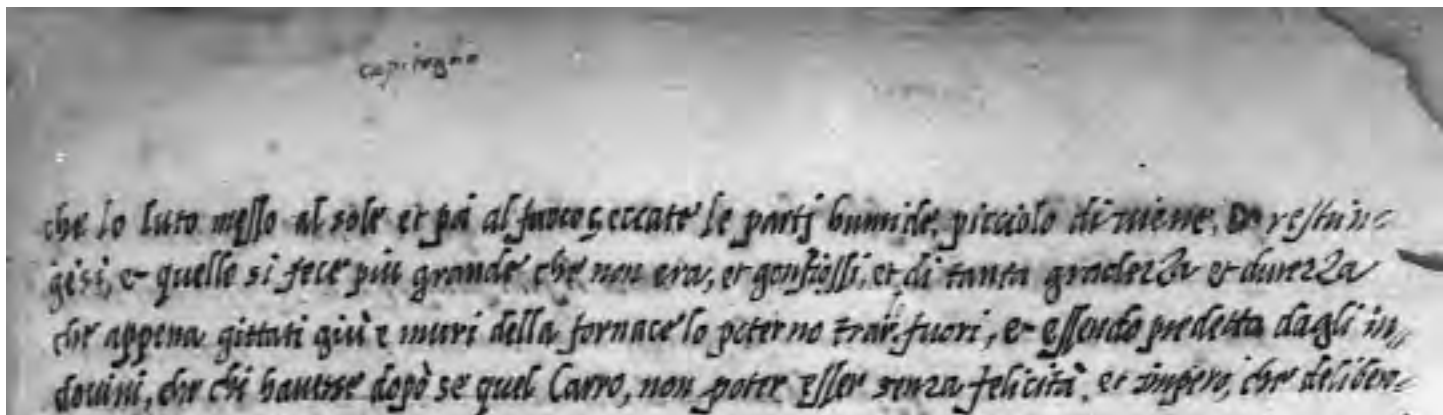 capitogno
che lo luto messo al sole et pá al fuoco, seccate le partj humide, picciolo diviene, restrin=
gesi, e quello si fece piu grande che non era, et gonfiossi, et di tanta gradezza et durezza
che appena gittati giù e muri della fornace lo poterno trar fuori, e essendo predetto dagli in,,
douini, che chi hauesse dopò se quel Carro, non poter esser senza felicità, et impero, che delibero=